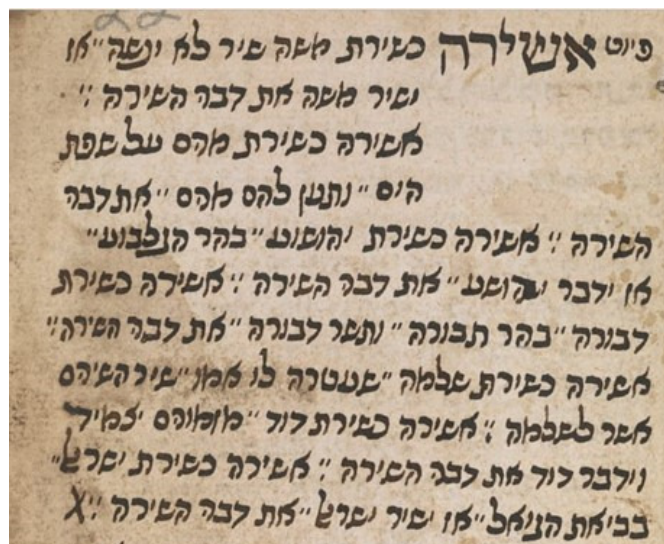 פיוט אשירה כשירת משה שיר לא ינשה״ אז
ישיר משה את דבר השירה :׳
אשירה כשירת מרים על שפת
הים ״ ותען להם מרים ״את דבר
השירה :׳ אשירה כשירת יהושוע ״בהר הגלבוע״
אז ידבר יהושע ״את דבר השירה :׳ אשירה כשירת
דבורה ״בהר תבורה ״ ותשר דבורה ״את דבר השירה:׳
אשירה כשירת שלמה ״שעטרה לו אמו ״שיר השירים
אשר לשלמה :׳ אשירה כשירת דוד ״מזמורים יצמיד
וידבר דוד את דבר השירה :׳ אשירה כשירת ישראל״
בביאת הגואל ״אז ישיר ישראל ״את דבר השירה :׳